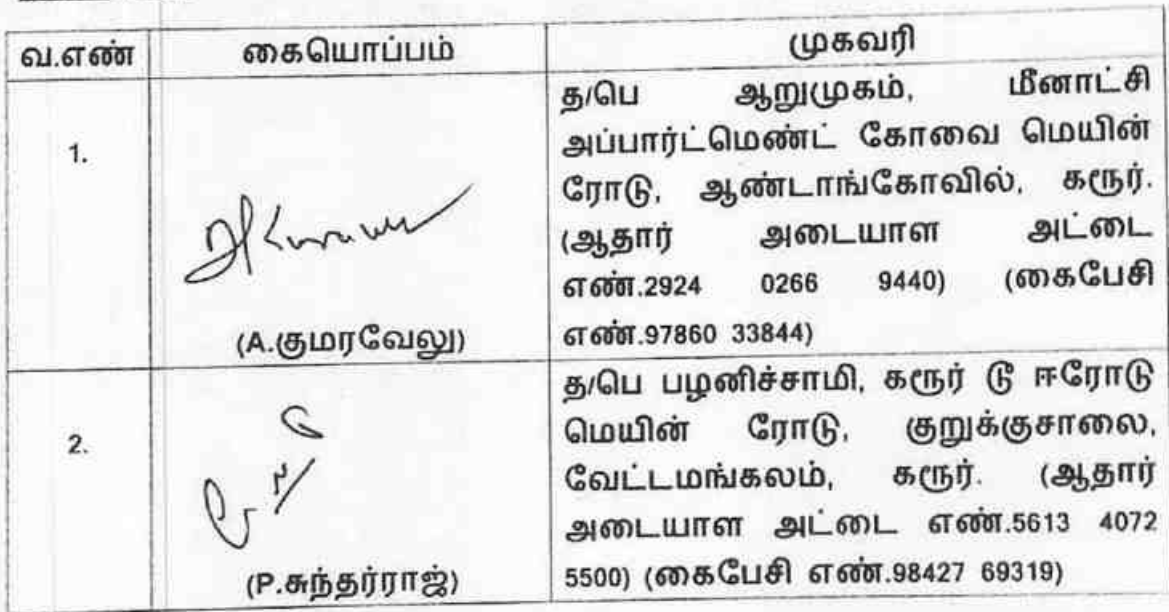 வ.எண் கையொப்பம் முகவரி
1.
(A.குமரவேலு)
த/பெ ஆறுமுகம், மீனாட்சி
அப்பார்ட்மெண்ட் கோவை மெயின்
ரோடு, ஆண்டாங்கோவில், கரூர்.
(ஆதார் அடையாள அட்டை
எண்.2924 0266 9440) (கைபேசி
எண்.97860 33844)
2.
(P.சுந்தர்ராஜ்)
த/பெ பழனிச்சாமி, கரூர் டூ ஈரோடு
மெயின் ரோடு, குறுக்குசாலை,
வேட்டமங்கலம், கரூர். (ஆதார்
அடையாள அட்டை எண்.5613 4072
5500) (கைபேசி எண்.98427 69319)